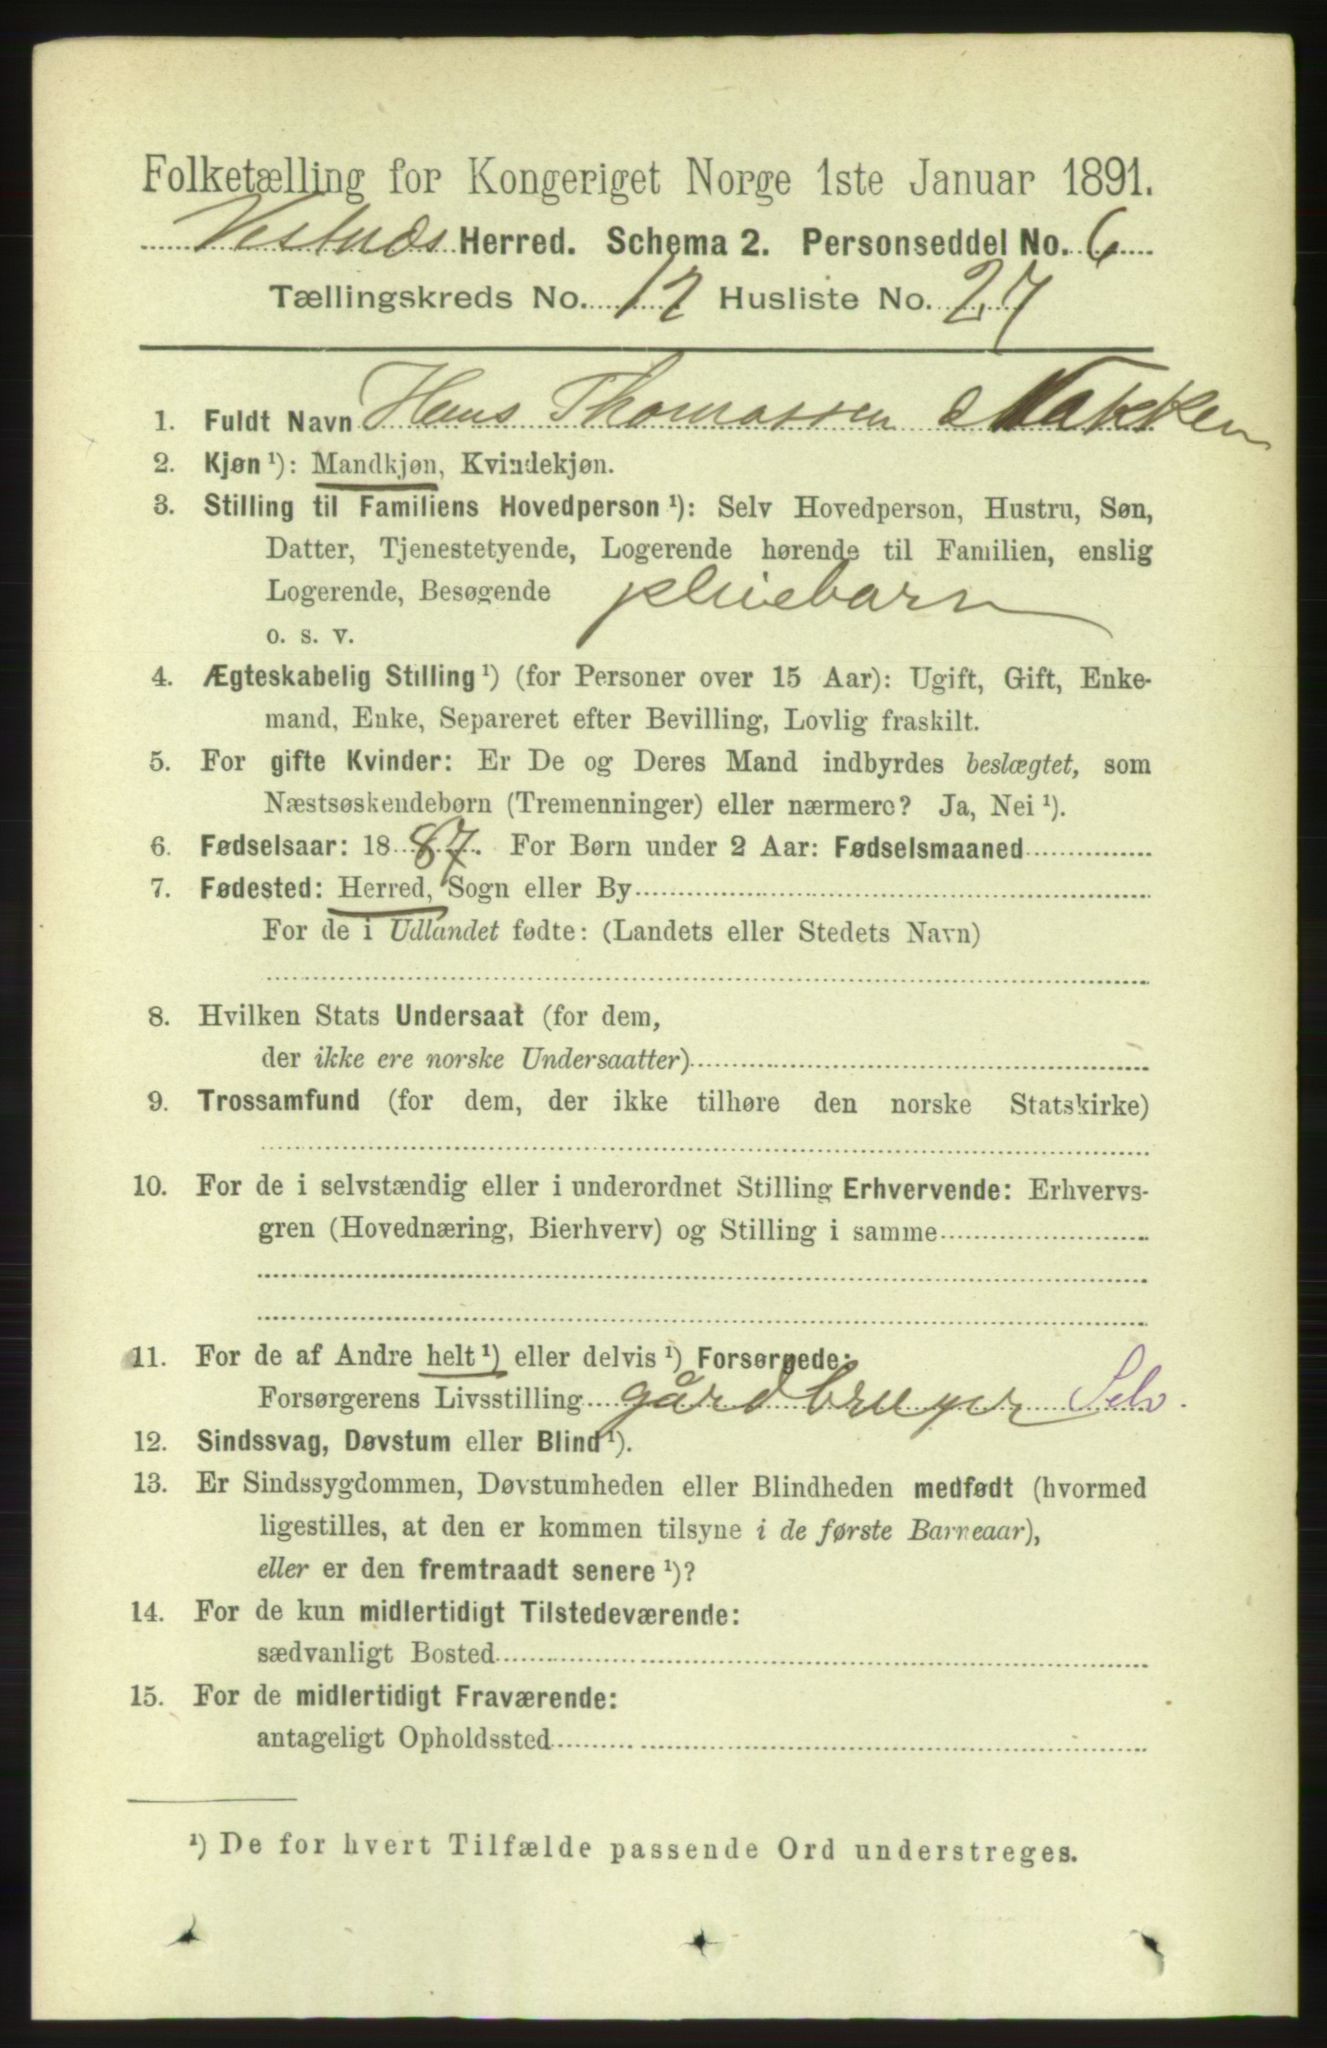 Folketælling for Kongeriget Norge 1ste Januar 1891.
Vestnæs Herred. Schema 2. Personseddel No. 6
Tællingskreds No. 12 Husliste No. 27
1. Fuldt Navn Hans Thomassen
2. Kjøn ¹): Mandkjøn, Kvindekjøn.
3. Stilling til Familiens Hovedperson ¹): Selv Hovedperson, Hustru, Søn,
Datter, Tjenestetyende, Logerende hørende til Familien, enslig
Logerende, Besøgende pleiebarn
o. s. v.
4. Ægteskabelig Stilling ¹) (for Personer over 15 Aar): Ugift, Gift, Enke-
mand, Enke, Separeret efter Bevilling, Lovlig fraskilt.
5. For gifte Kvinder: Er De og Deres Mand indbyrdes beslægtet, som
Næstsøskendebørn (Tremenninger) eller nærmere? Ja, Nei ¹).
6. Fødselsaar: 1887. For Børn under 2 Aar: Fødselsmaaned
7. Fødested: Herred, Sogn eller By
For de i Udlandet fødte: (Landets eller Stedets Navn)
8. Hvilken Stats Undersaat (for dem,
der ikke ere norske Undersaatter)
9. Trossamfund (for dem, der ikke tilhøre den norske Statskirke)
10. For de i selvstændig eller i underordnet Stilling Erhvervende: Erhvervs-
gren (Hovednæring, Bierhverv) og Stilling i samme
11. For de af Andre helt ¹) eller delvis ¹) Forsørgede:
Forsørgerens Livsstilling gårdbruger Selv.
12. Sindssvag, Døvstum eller Blind ¹).
13. Er Sindssygdommen, Døvstumheden eller Blindheden medfødt (hvormed
ligestilles, at den er kommen tilsyne i de første Barneaar),
eller er den fremtraadt senere ¹)?
14. For de kun midlertidigt Tilstedeværende:
sædvanligt Bosted
15. For de midlertidigt Fraværende:
antageligt Opholdssted
¹) De for hvert Tilfælde passende Ord understreges.